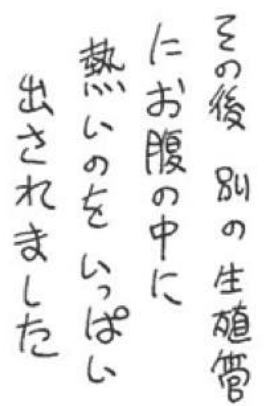 その後 別の生殖管
にお腹の中に
熱いのを いっぱい
出されました